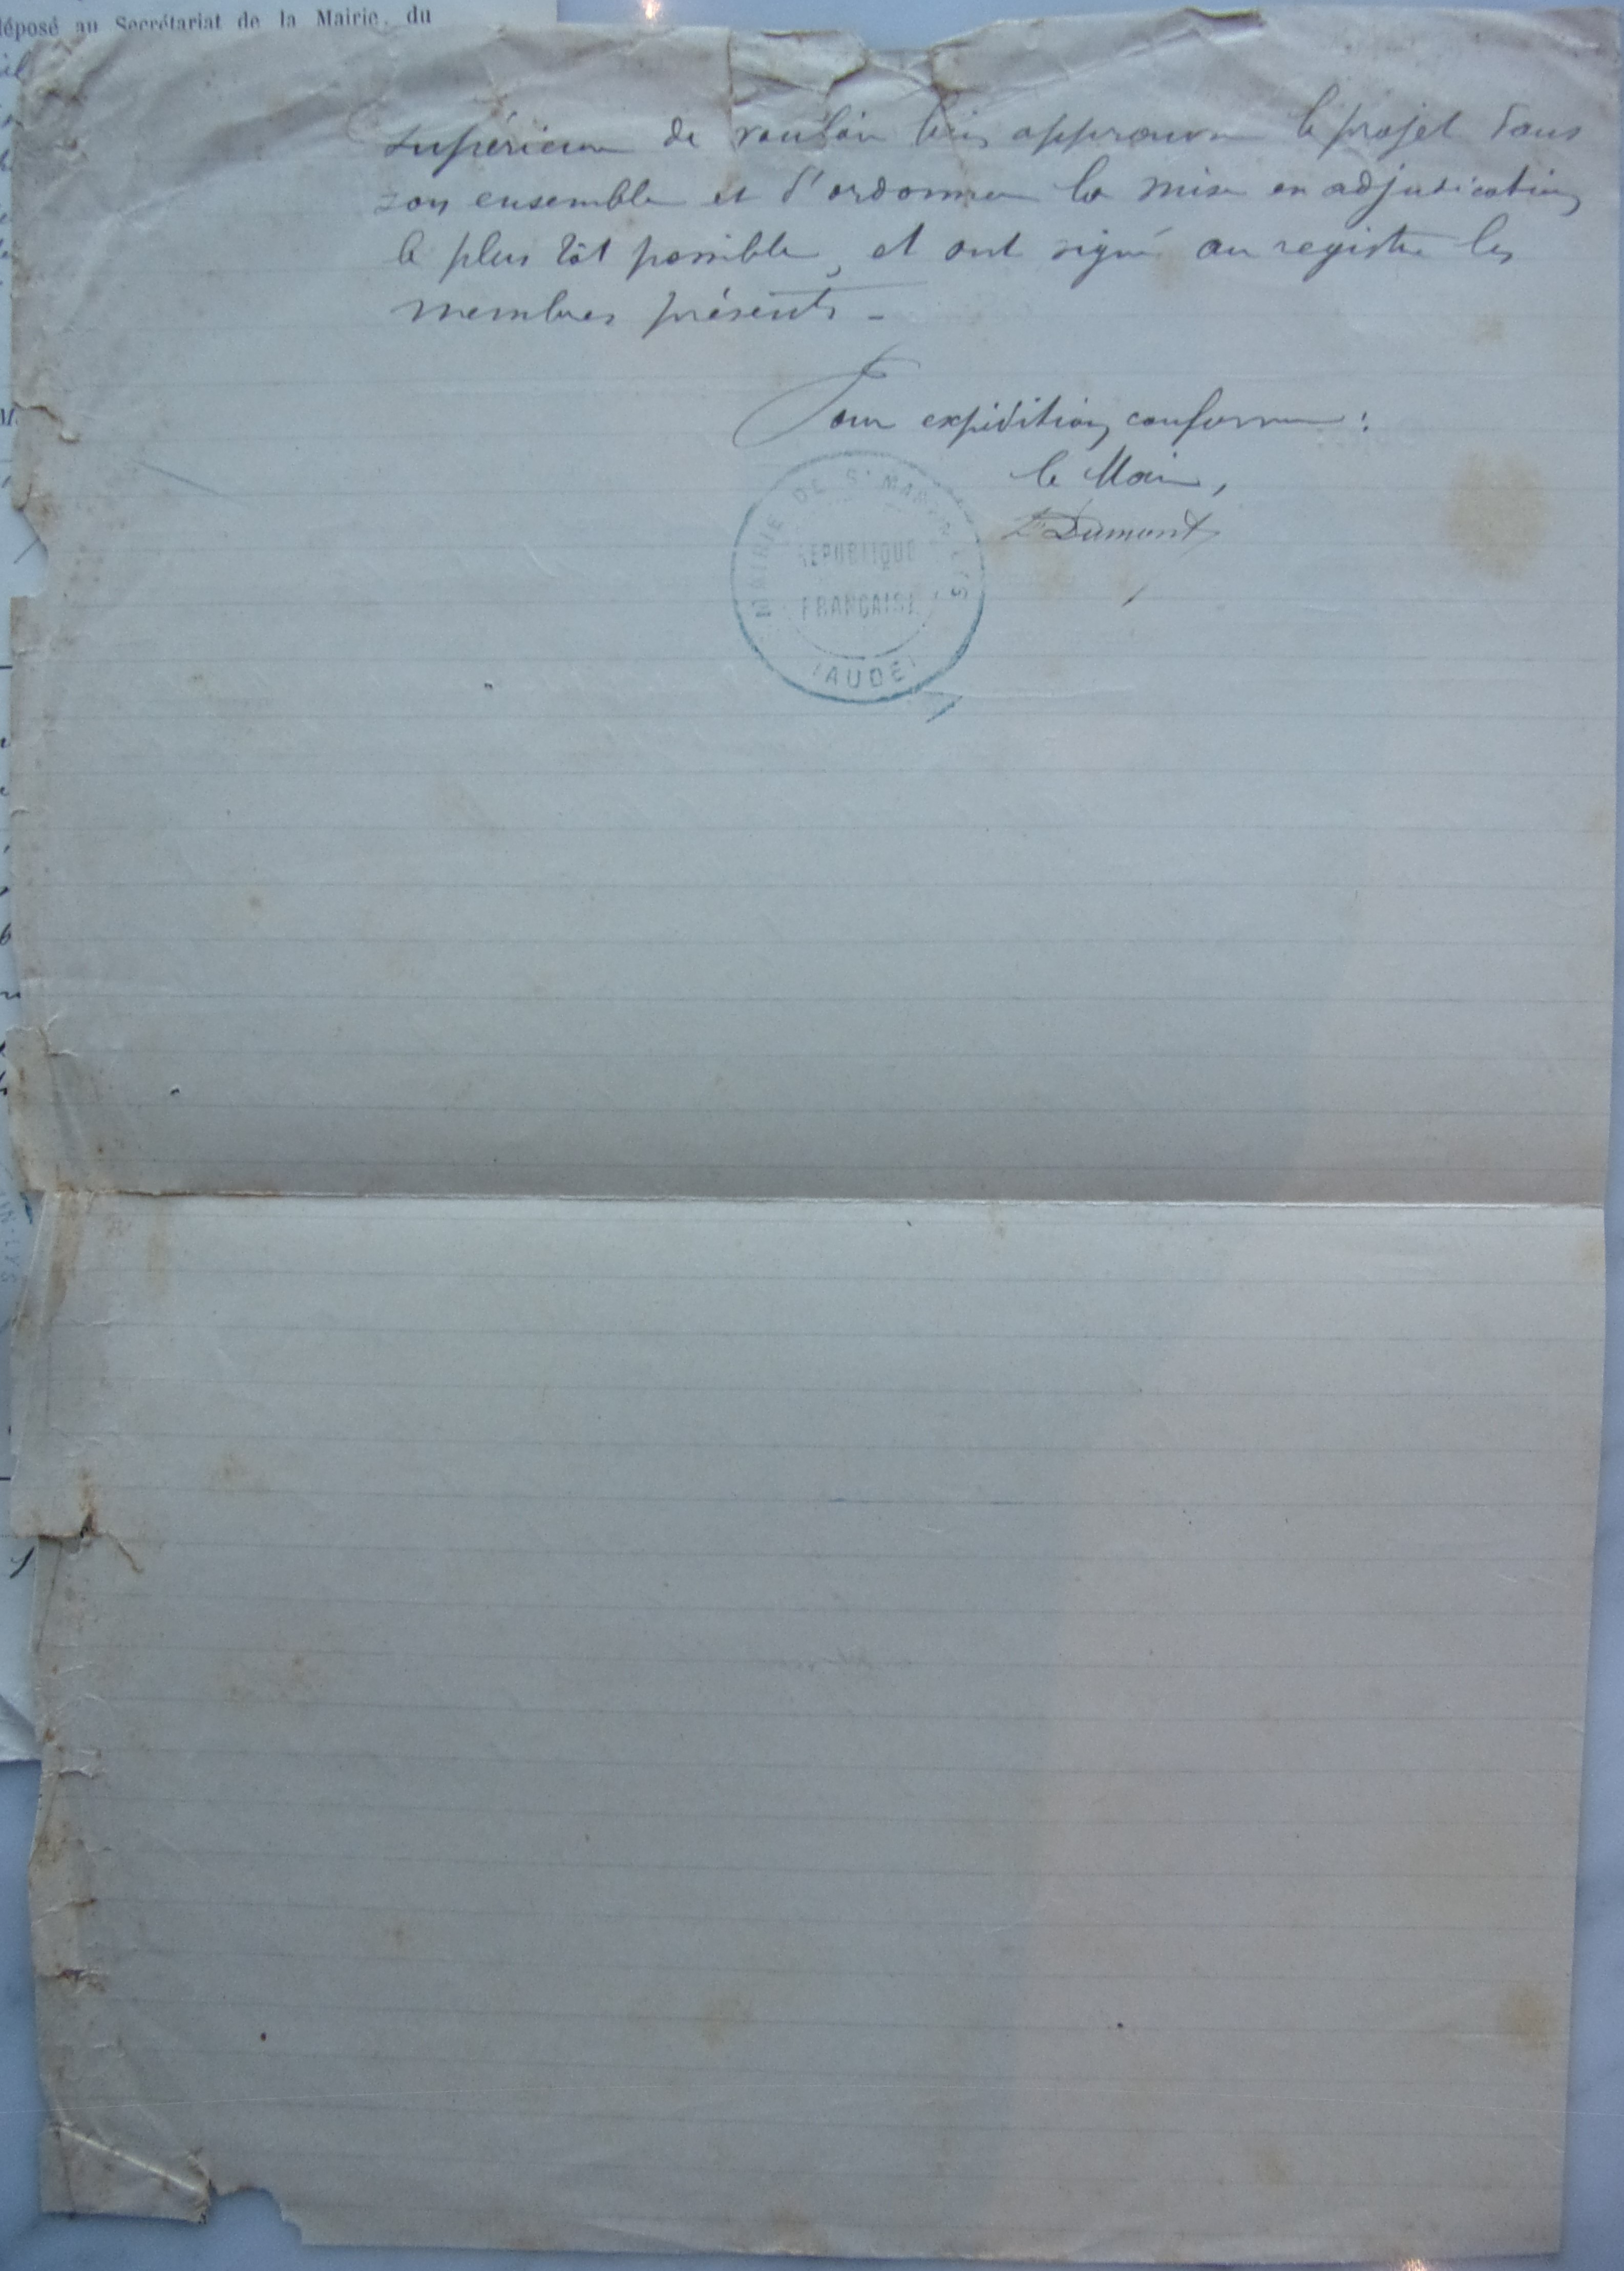 déposé au Secrétariat de la Mairie, du
supérieure de vouloir bien approuver le projet dans
son ensemble et d'ordonner la mise en adjudication
le plus tôt possible, et ont signé au registre les
membres présents -
Pour expédition conforme :
le Maire,
Dumont
MAIRIE DE St MARTIN LYS
RÉPUBLIQUE
FRANÇAISE
(AUDE)